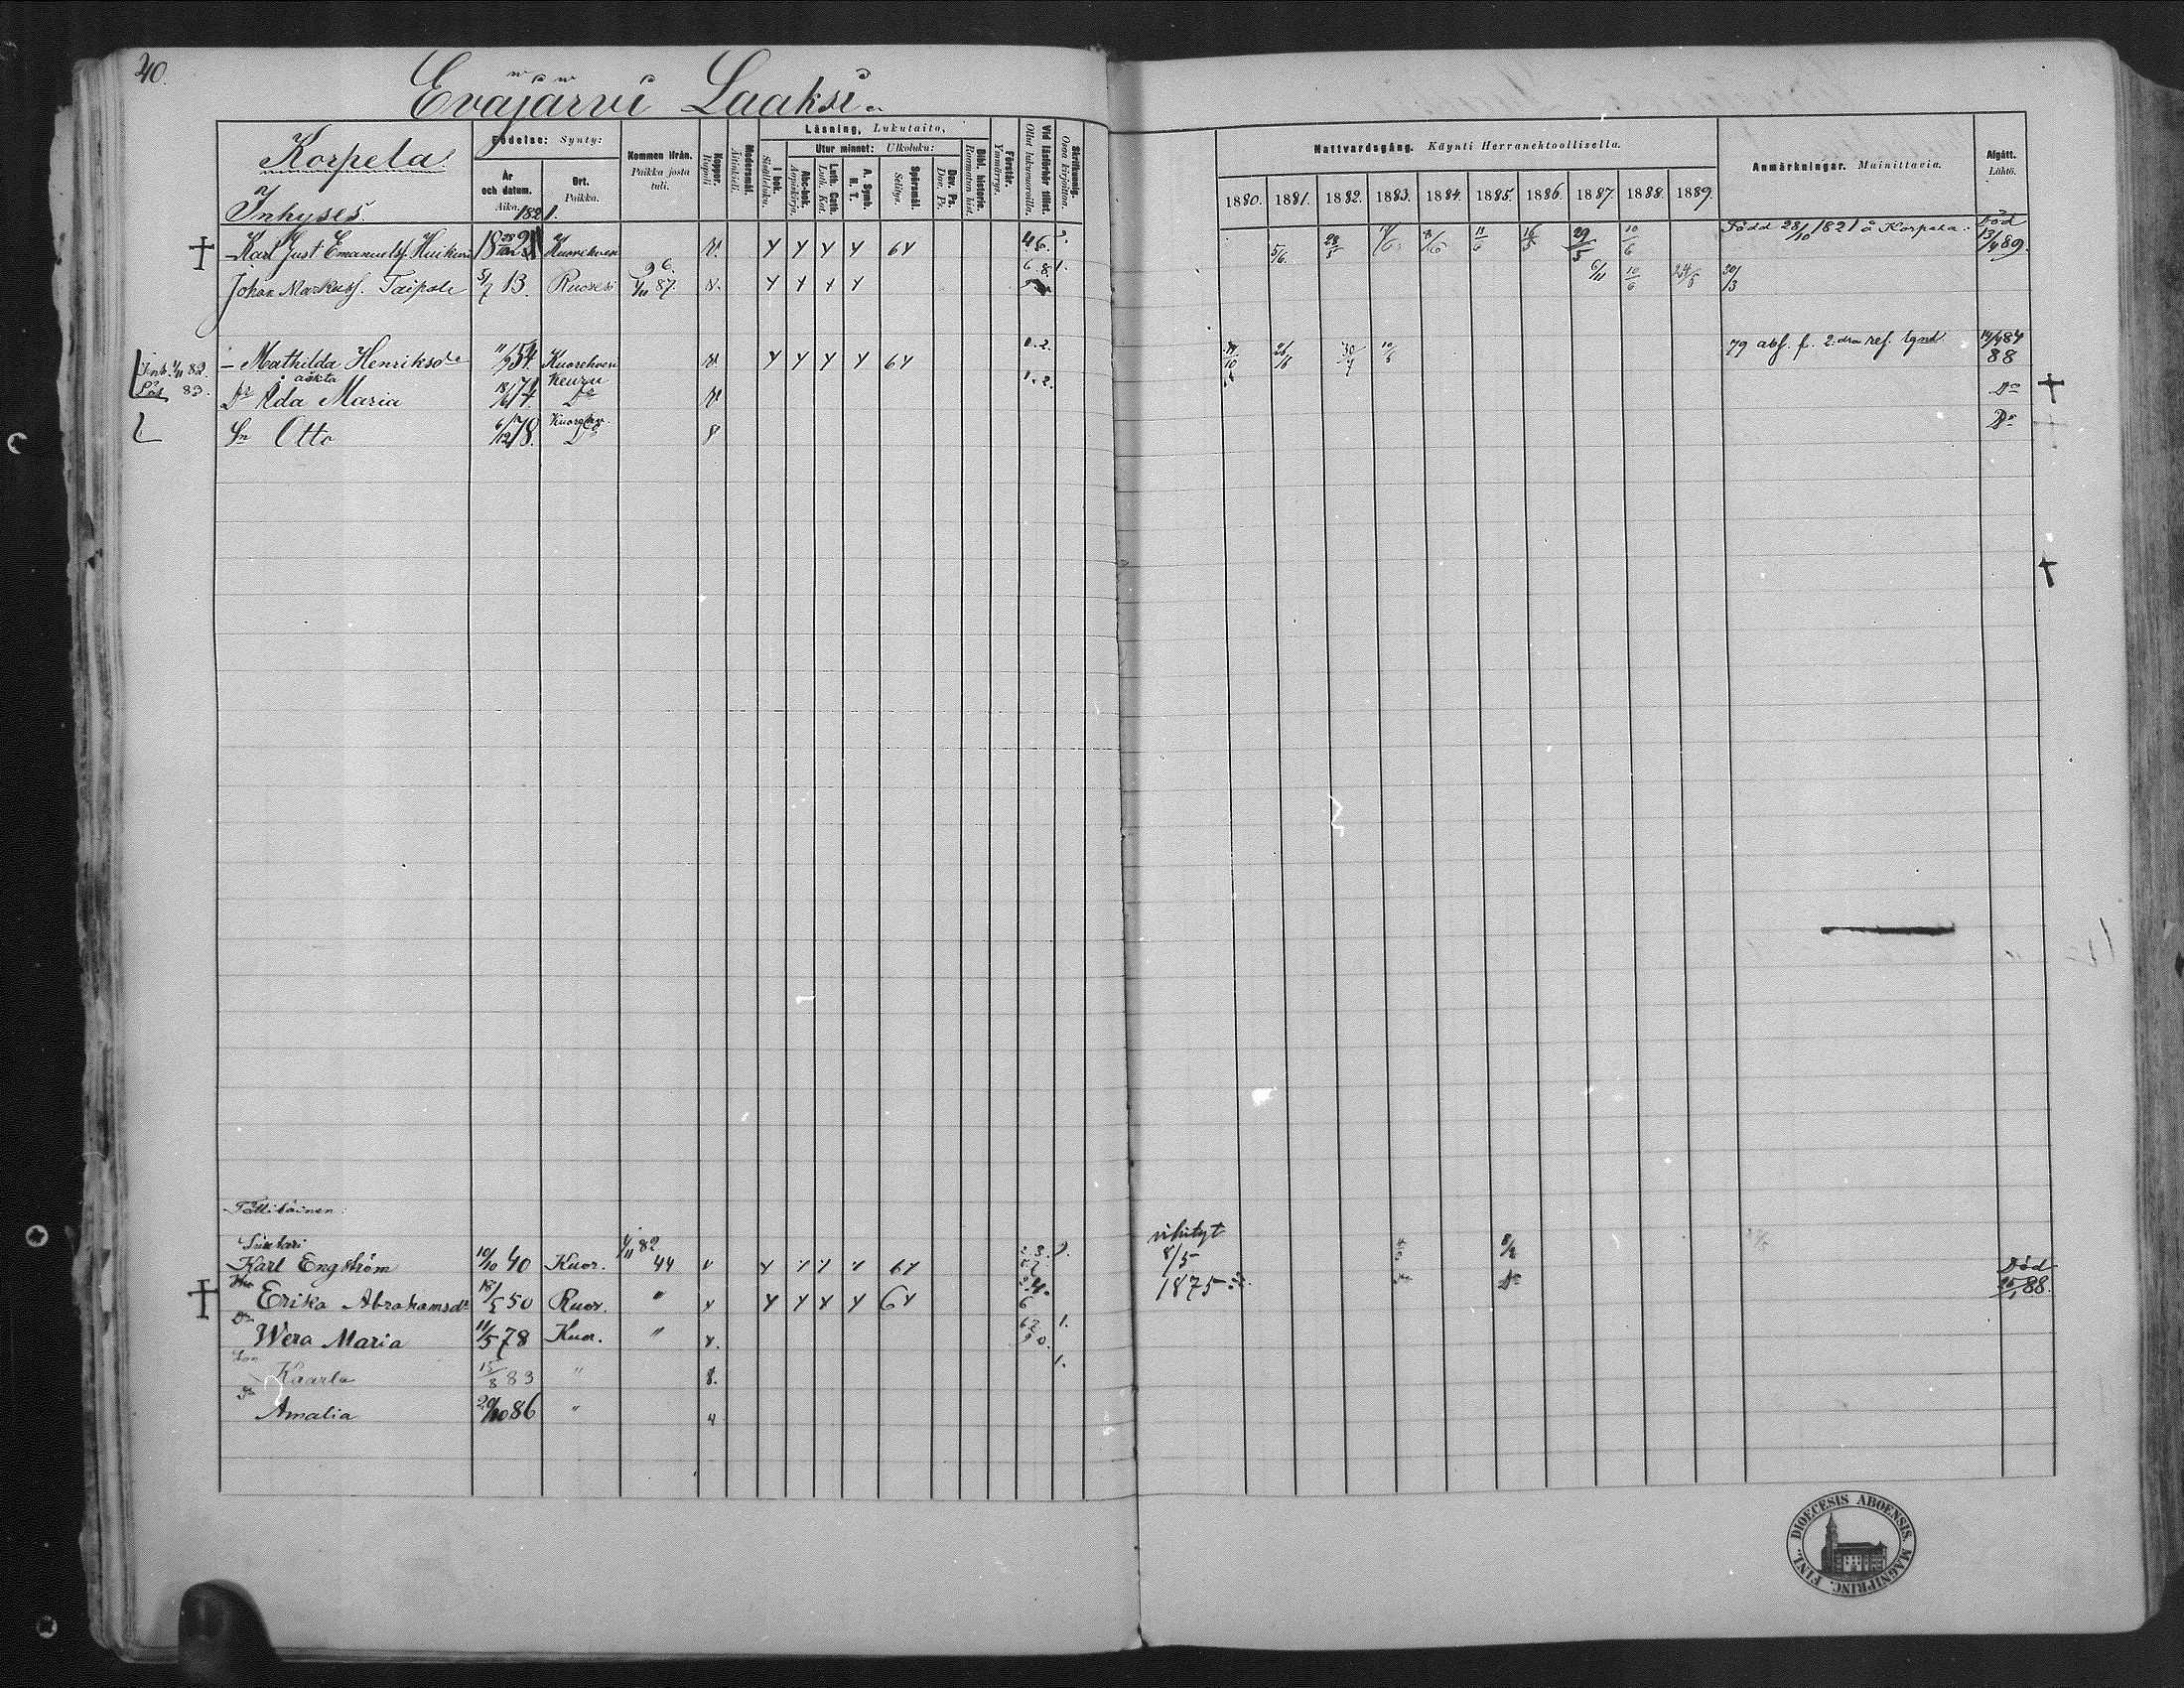 40.
Eväjärvi Laaksi
Korpela
Inhyses.
Födelse: Synty:
År och datum. Aika.
Ort. Paikka.
Kommen ifrån. Paikka josta tuli.
Koppor. Rupuli
Modersmål. Äitinkieli.
Läsning, Lukutaito,
I bok. Sisältluku.
Utur minnet: Ulkoluku:
Abc-bok. Aapiskirja.
Luth. Cath. Luth. Kat.
A. Symb. H. T.
Spörsmål. Selitys.
Dav. Ps. Dav. Ps.
Bibl. historie. Raamatun hist.
Förstår. Ymmärrys.
Vid läsförhör tillst. Ollut lukuvuoroilla.
Skrifkunnig. Osaa kirjoittaa.
Nattvardsgång. Käynti Herranehtoollisella.
1880. 1881. 1882. 1883. 1884. 1885. 1886. 1887. 1888. 1889.
Anmärkningar. Mainittavia.
Afgått. Lähtö.
1821.
Karl Just Emanuelsf Huikuri Kuorehvesi 64 46. 5/6 28/5 8/6 11/6 16/5 29/5 10/6 Född 28/10 1821 å Korpela. Död 13/4 89.
Johan Markusf. Taipale 5/7 13. Ruovesi 1/11 87. 6/11 10/6 24/8 30/3
Inh. 1/11 82. Mathilda Henriksdr 11/9 54. Kuorehvesi 64 30/4 10/6 79 abs. f. 2:dra res. lgnd 14/4 84 88
Lös 83. Dr oäkta Ida Maria 18/6 74. Keuru Do 1.2. Do
Sn Otto 6/12 78. Kuorehv. Do Do
Sixtari
Karl Engström 10/10 40 Kuor. 1/11 82 44 64 vihityt 8/5
Hu Erika Abrahamsdr 50 Ruov. " 64 1875 Do Död 25/1 88.
Dr Wera Maria 11/5 78 Kuor. " 1.
Son Kaarlo 15/8 83 " 1.
Dr Amalia 20/10 86 "
DIOECESIS ABOENSIS. MAGNI PRINC. FINL.